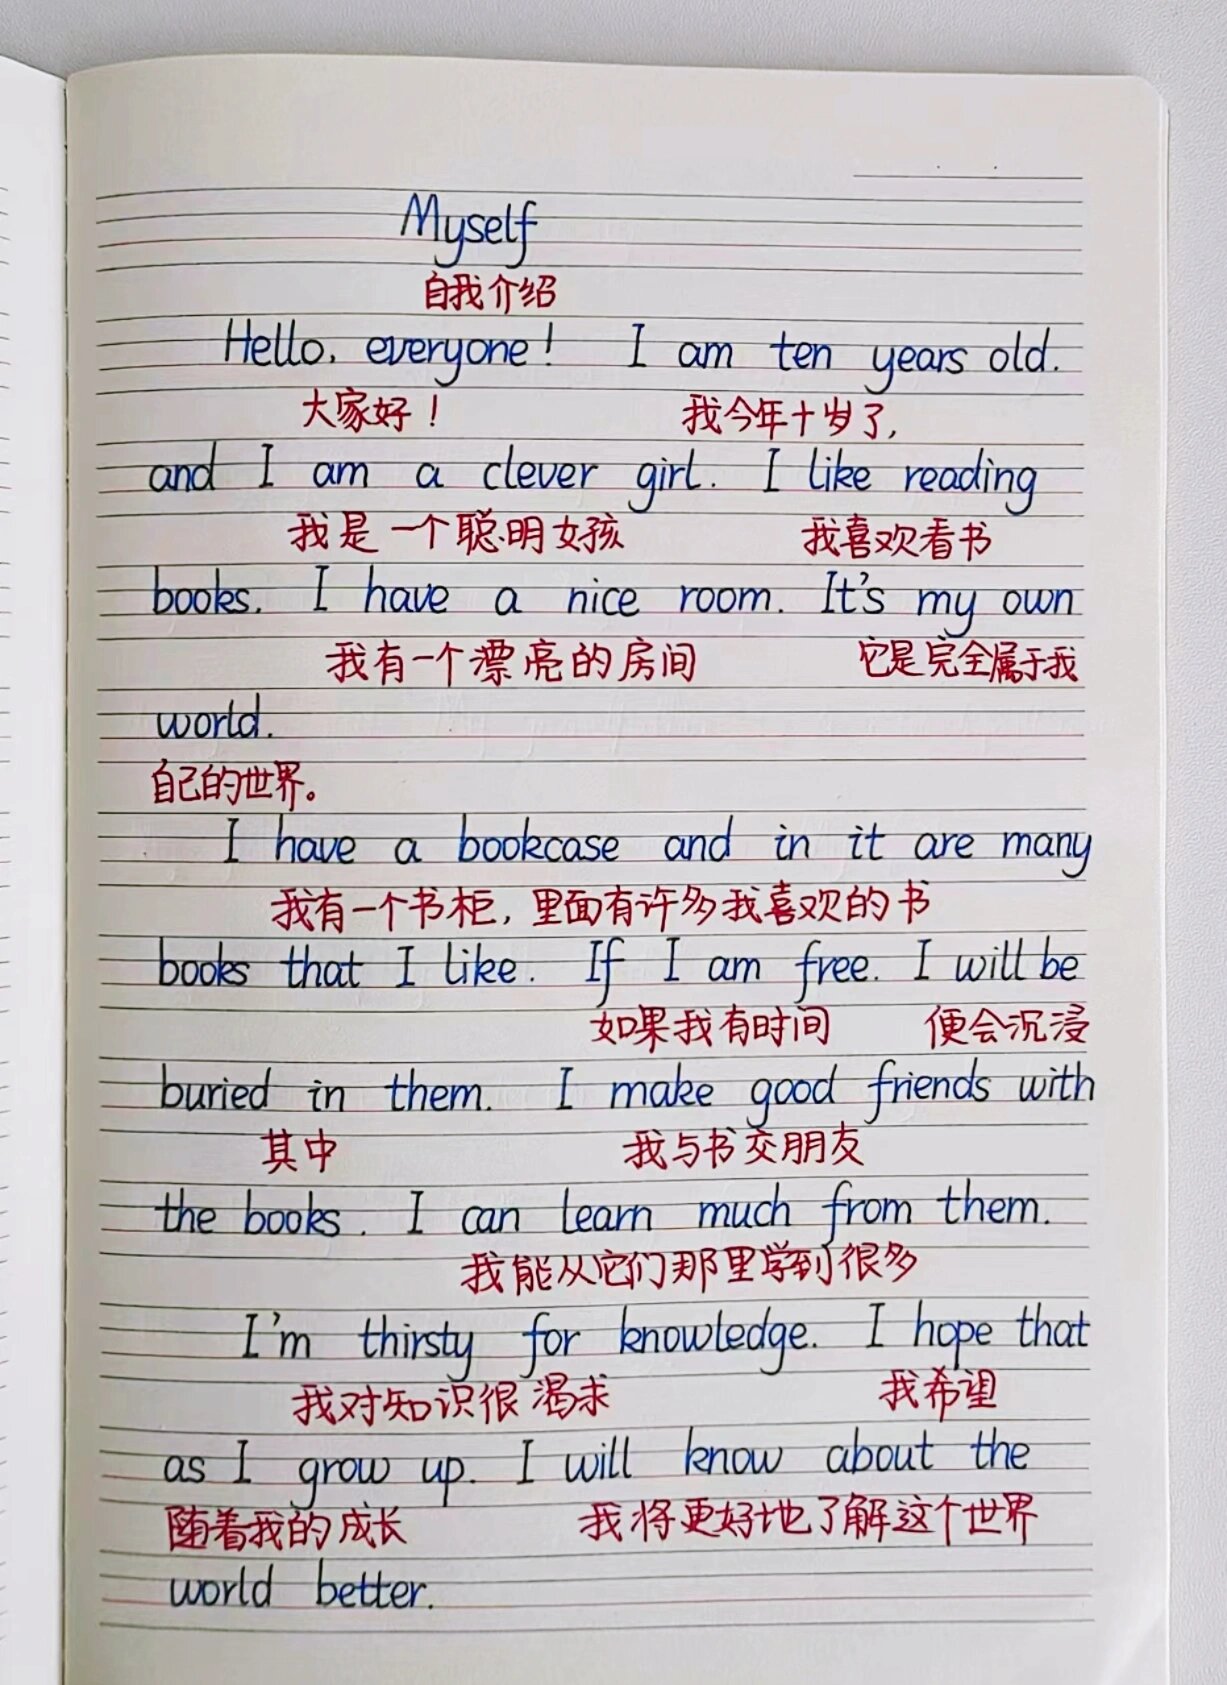 Myself
自我介绍
Hello, everyone! I am ten years old.
大家好! 我今年十岁了,
and I am a clever girl. I like reading
我是一个聪明女孩 我喜欢看书
books. I have a nice room. It's my own
我有一个漂亮的房间 它是完全属于我
world.
自己的世界。
I have a bookcase and in it are many
我有一个书柜, 里面有许多我喜欢的书
books that I like. If I am free. I will be
如果我有时间 便会沉浸
buried in them. I make good friends with
其中 我与书交朋友
the books. I can learn much from them.
我能从它们那里学到很多
I'm thirsty for knowledge. I hope that
我对知识很渴求 我希望
as I grow up. I will know about the
随着我的成长 我将更好地了解这个世界
world better.